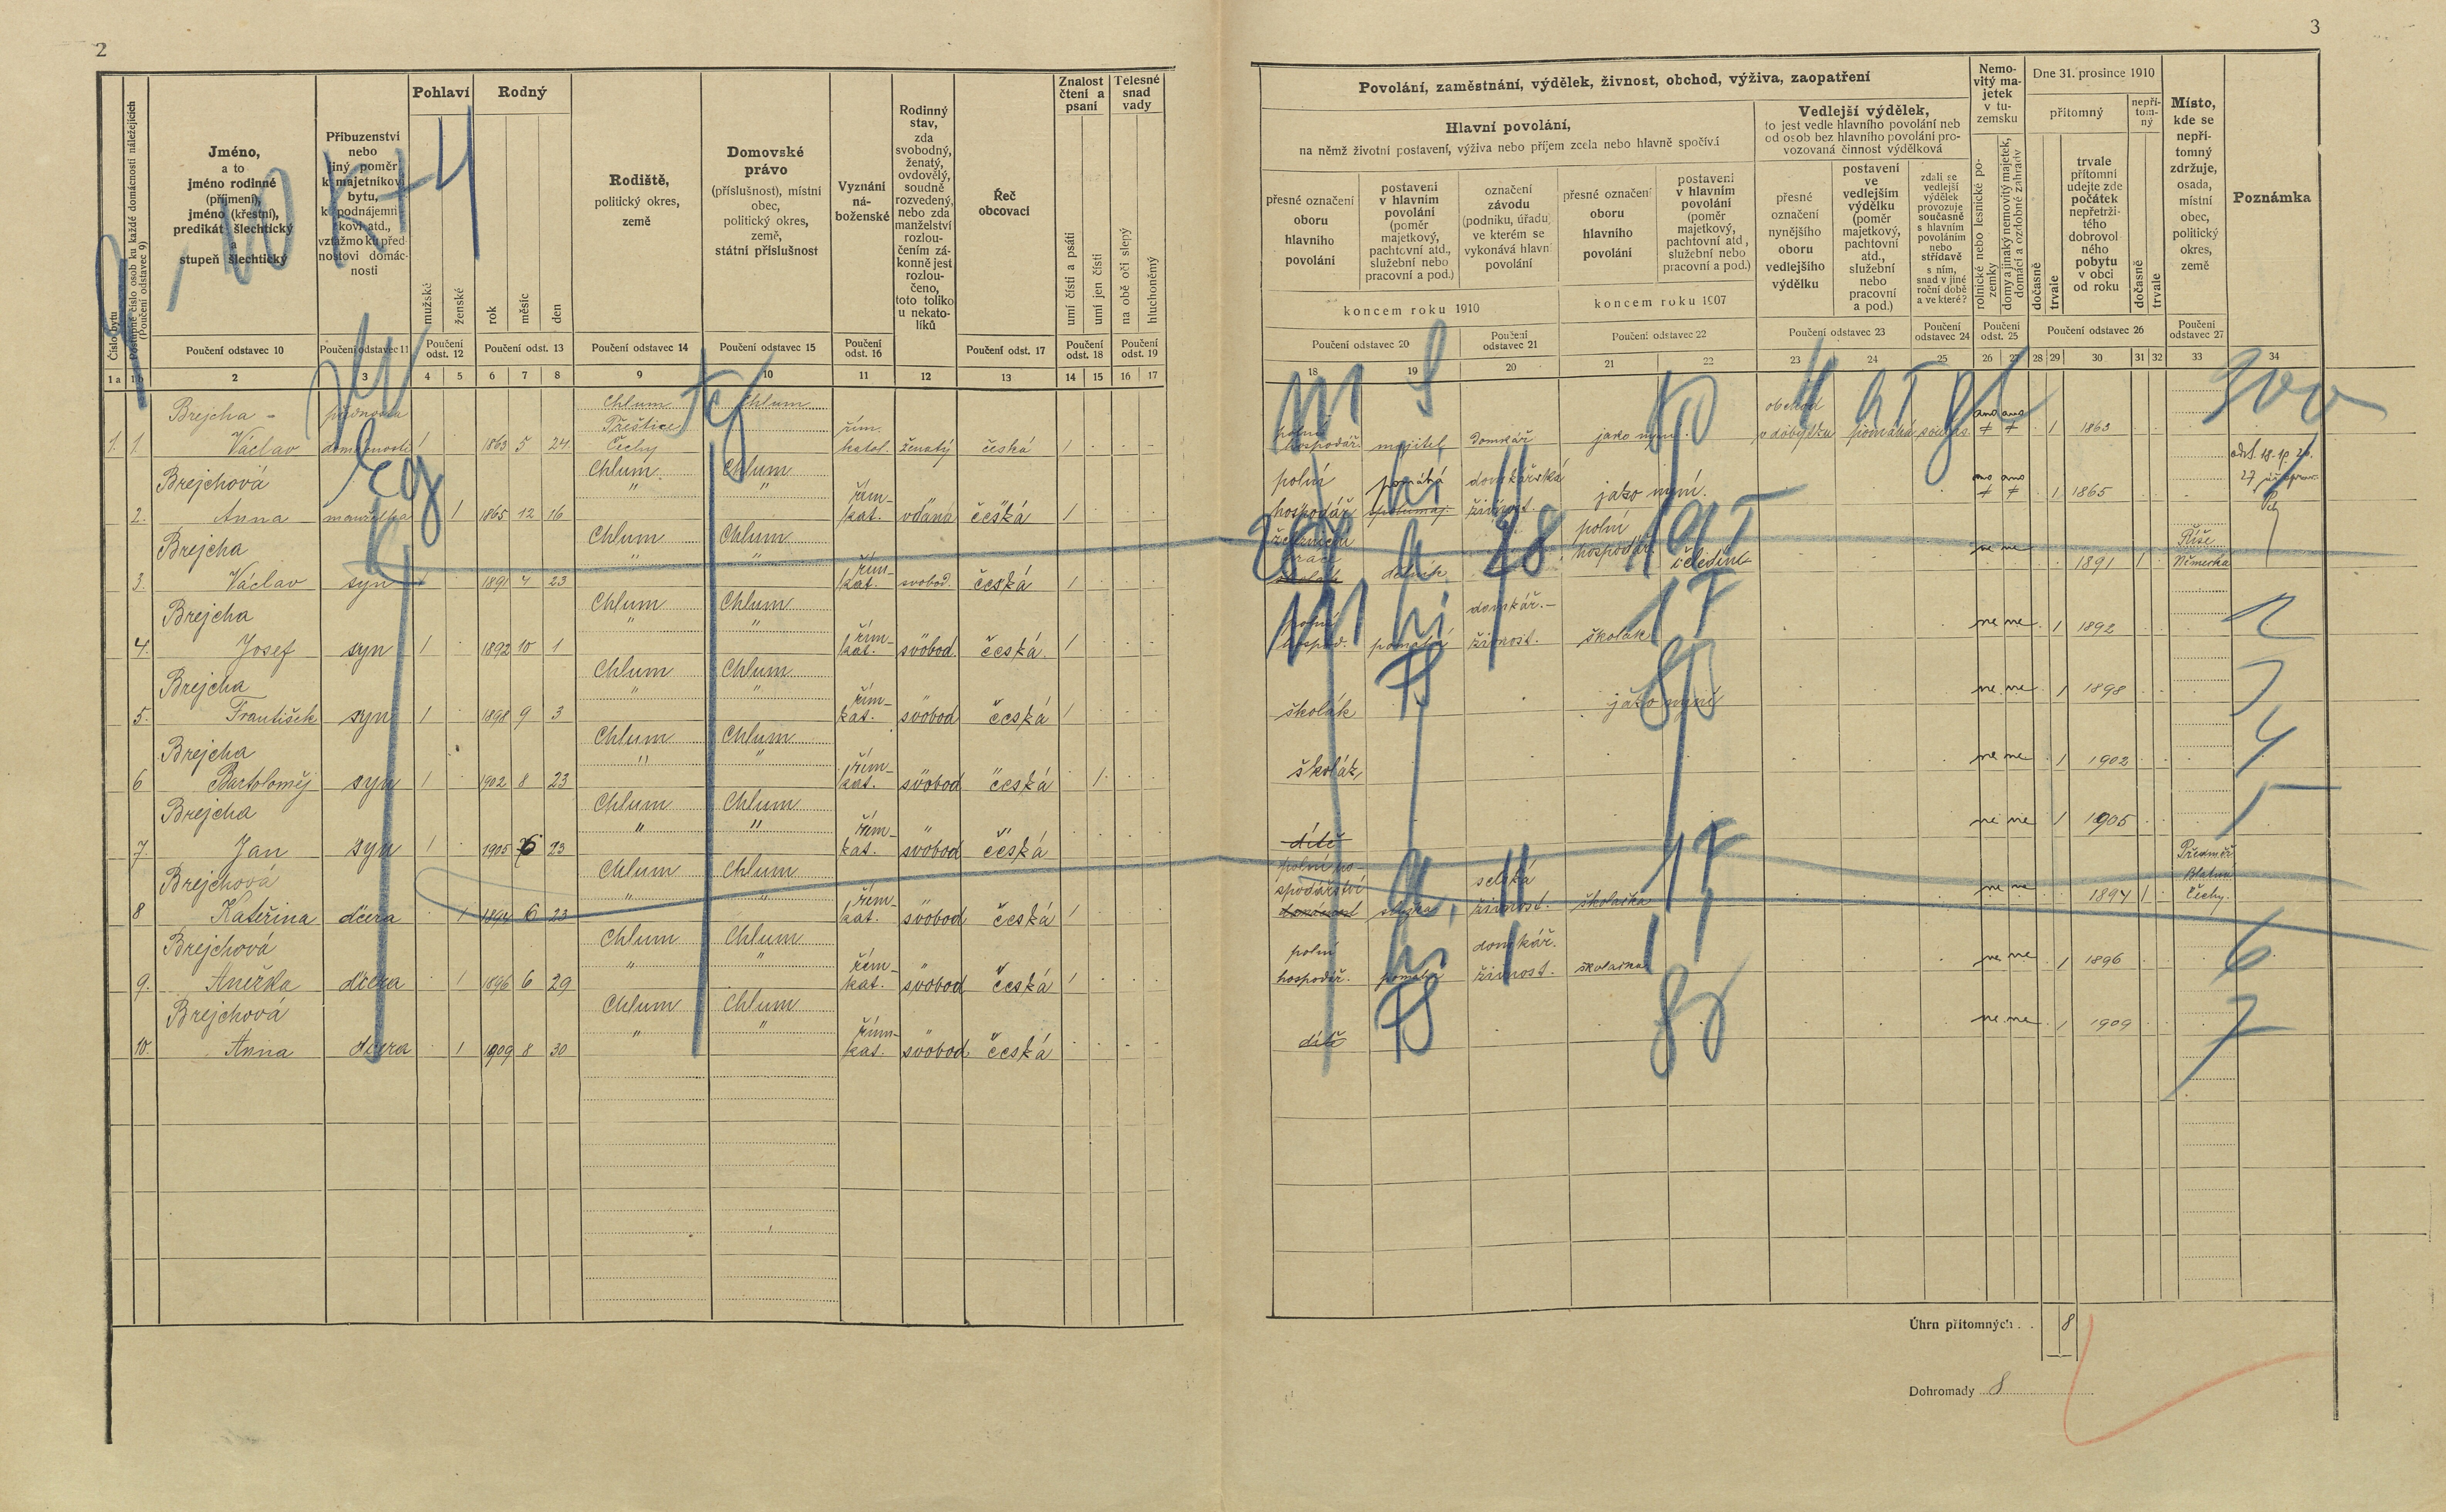 2
3
Číslo bytu
Postupné číslo osob ku každé domácnosti náležejících
(Poučení odstavec 9)
Jméno,
a to
jméno rodinné
(příjmení),
jméno (křestní),
predikát šlechtický
a
stupeň šlechtický
Příbuzenství
nebo
jiný poměr
k majetníkovi
bytu,
ku podnájemní-
kovi atd.,
vztažmo ku před-
nostovi domác-
nosti
Pohlaví
mužské
ženské
Rodný
rok
měsíc
den
Rodiště,
politický okres,
země
Domovské
právo
(příslušnost), místní
obec,
politický okres,
země,
státní příslušnost
Vyznání
ná-
boženské
Rodinný
stav,
zda
svobodný,
ženatý,
ovdovělý,
soudně
rozvedený,
nebo zda
manželství
rozlou-
čením zá-
konně jest
rozlou-
čeno,
toto toliko
u nekato-
líků
Řeč
obcovací
Znalost
čtení a
psaní
umí čísti a psáti
umí jen čísti
Tělesné
snad
vady
na obě oči slepý
hluchoněmý
Poučení odstavec 10
Poučení odstavec 11
Poučení
odst. 12
Poučení odst. 13
Poučení odstavec 14
Poučení odstavec 15
Poučení
odst. 16
Poučení odst. 17
Poučení
odst. 18
Poučení
odst. 19
1 a 1 b 2 3 4 5 6 7 8 9 10 11 12 13 14 15 16 17
Povolání, zaměstnání, výdělek, živnost, obchod, výživa, zaopatření
Hlavní povolání,
na němž životní postavení, výživa nebo příjem zcela nebo hlavně spočívá
přesné označení
oboru
hlavního
povolání
postavení
v hlavním
povolání
(poměr
majetkový,
pachtovní atd.,
služební nebo
pracovní a pod.)
označení
závodu
(podniku, úřadu)
ve kterém se
vykonává hlavní
povolání
koncem roku 1910
přesné označení
oboru
hlavního
povolání
postavení
v hlavním
povolání
(poměr
majetkový,
pachtovní atd.,
služební nebo
pracovní a pod.)
koncem roku 1907
Vedlejší výdělek,
to jest vedle hlavního povolání neb
od osob bez hlavního povolání pro-
vozovaná činnost výdělková
přesné
označení
nynějšího
oboru
vedlejšího
výdělku
postavení
ve
vedlejším
výdělku
(poměr
majetkový,
pachtovní
atd.,
služební
nebo
pracovní
a pod.)
zdali se
vedlejší
výdělek
provozuje
současně
s hlavním
povoláním
nebo
střídavě
s ním,
snad v jiné
roční době
a ve které?
Nemo-
vitý ma-
jetek
v tu-
zemsku
rolnické nebo lesnické po-
zemky
domy a jinaký nemovitý majetek,
domácí a ozdobné zahrady
Dne 31. prosince 1910
přítomný
dočasně
trvale
trvale
přítomní
udejte zde
počátek
nepřetrži-
tého
dobrovol-
ného
pobytu
v obci
od roku
nepří-
tom-
ný
dočasně
trvale
Místo,
kde se
nepří-
tomný
zdržuje,
osada,
místní
obec,
politický
okres,
země
Poznámka
Poučení odstavec 20
Poučení
odstavec 21
Poučení odstavec 22
Poučení odstavec 23
Poučení
odstavec 24
Poučení
odst. 25
Poučení odstavec 26
Poučení
odstavec 27
18 19 20 21 22 23 24 25 26 27 28 29 30 31 32 33 34
Brejcha přednosta Chlum Chlum
Přeštice
1. 1. Václav domácnosti 1 1863 5 24 Čechy řím. katol. ženatý česká 1
polní hospodář. majitel domkář jako nyní. obchod pomáhá ano ano 1 1863
Brejchová Chlum Chlum
2. Anna manželka 1 1865 12 16 " " řím- kat. vdaná česká 1
polní hospodář pomáhá domkářská živnost. jako nyní. ano ano 1 1865
Brejcha Chlum Chlum
3. Václav syn 1891 4 23 " " řím- kat. svobod. česká 1
dělník polní hospodář. ne ne 1891 1 Říše Německa
Brejcha Chlum Chlum
4. Josef syn 1 1892 10 1 " " řím- kat. svobod. česká. 1
polní hospod. pomáhá domkář.- živnost. školák ne ne 1 1892
Brejcha Chlum Chlum
5. František syn 1 1898 9 3 " " řím- kat. svobod česká 1
školák jako nyní ne ne 1 1898
Brejcha Chlum Chlum
6 Bartoloměj syn 1 1902 8 23 " " řím- kat. svobod česká 1
školák ne ne 1 1902
Brejcha Chlum Chlum
7. Jan syn 1 1905 6 23 " " řím- kat. svobod česká
dítě ne ne 1 1905
Brejchová Chlum Chlum
8 Kateřina dcera 1 1894 6 23 " " řím- kat. svobod česká 1
polní hospodářství selská živnost. školačka ne ne 1894 1 Blatná Čechy.
Brejchová Chlum Chlum
9. Anežka dcera 1 1896 6 29 " " řím- kat. svobod česká 1
polní hospodář. pomáhá domkář. živnost. školačka ne ne 1 1896
Brejchová Chlum Chlum
10. Anna dcera 1 1909 8 30 " " řím- kat. svobod česká
dítě ne ne 1 1909
2
3
4
5
6
7
Úhrn přítomných . . 8
Dohromady 8